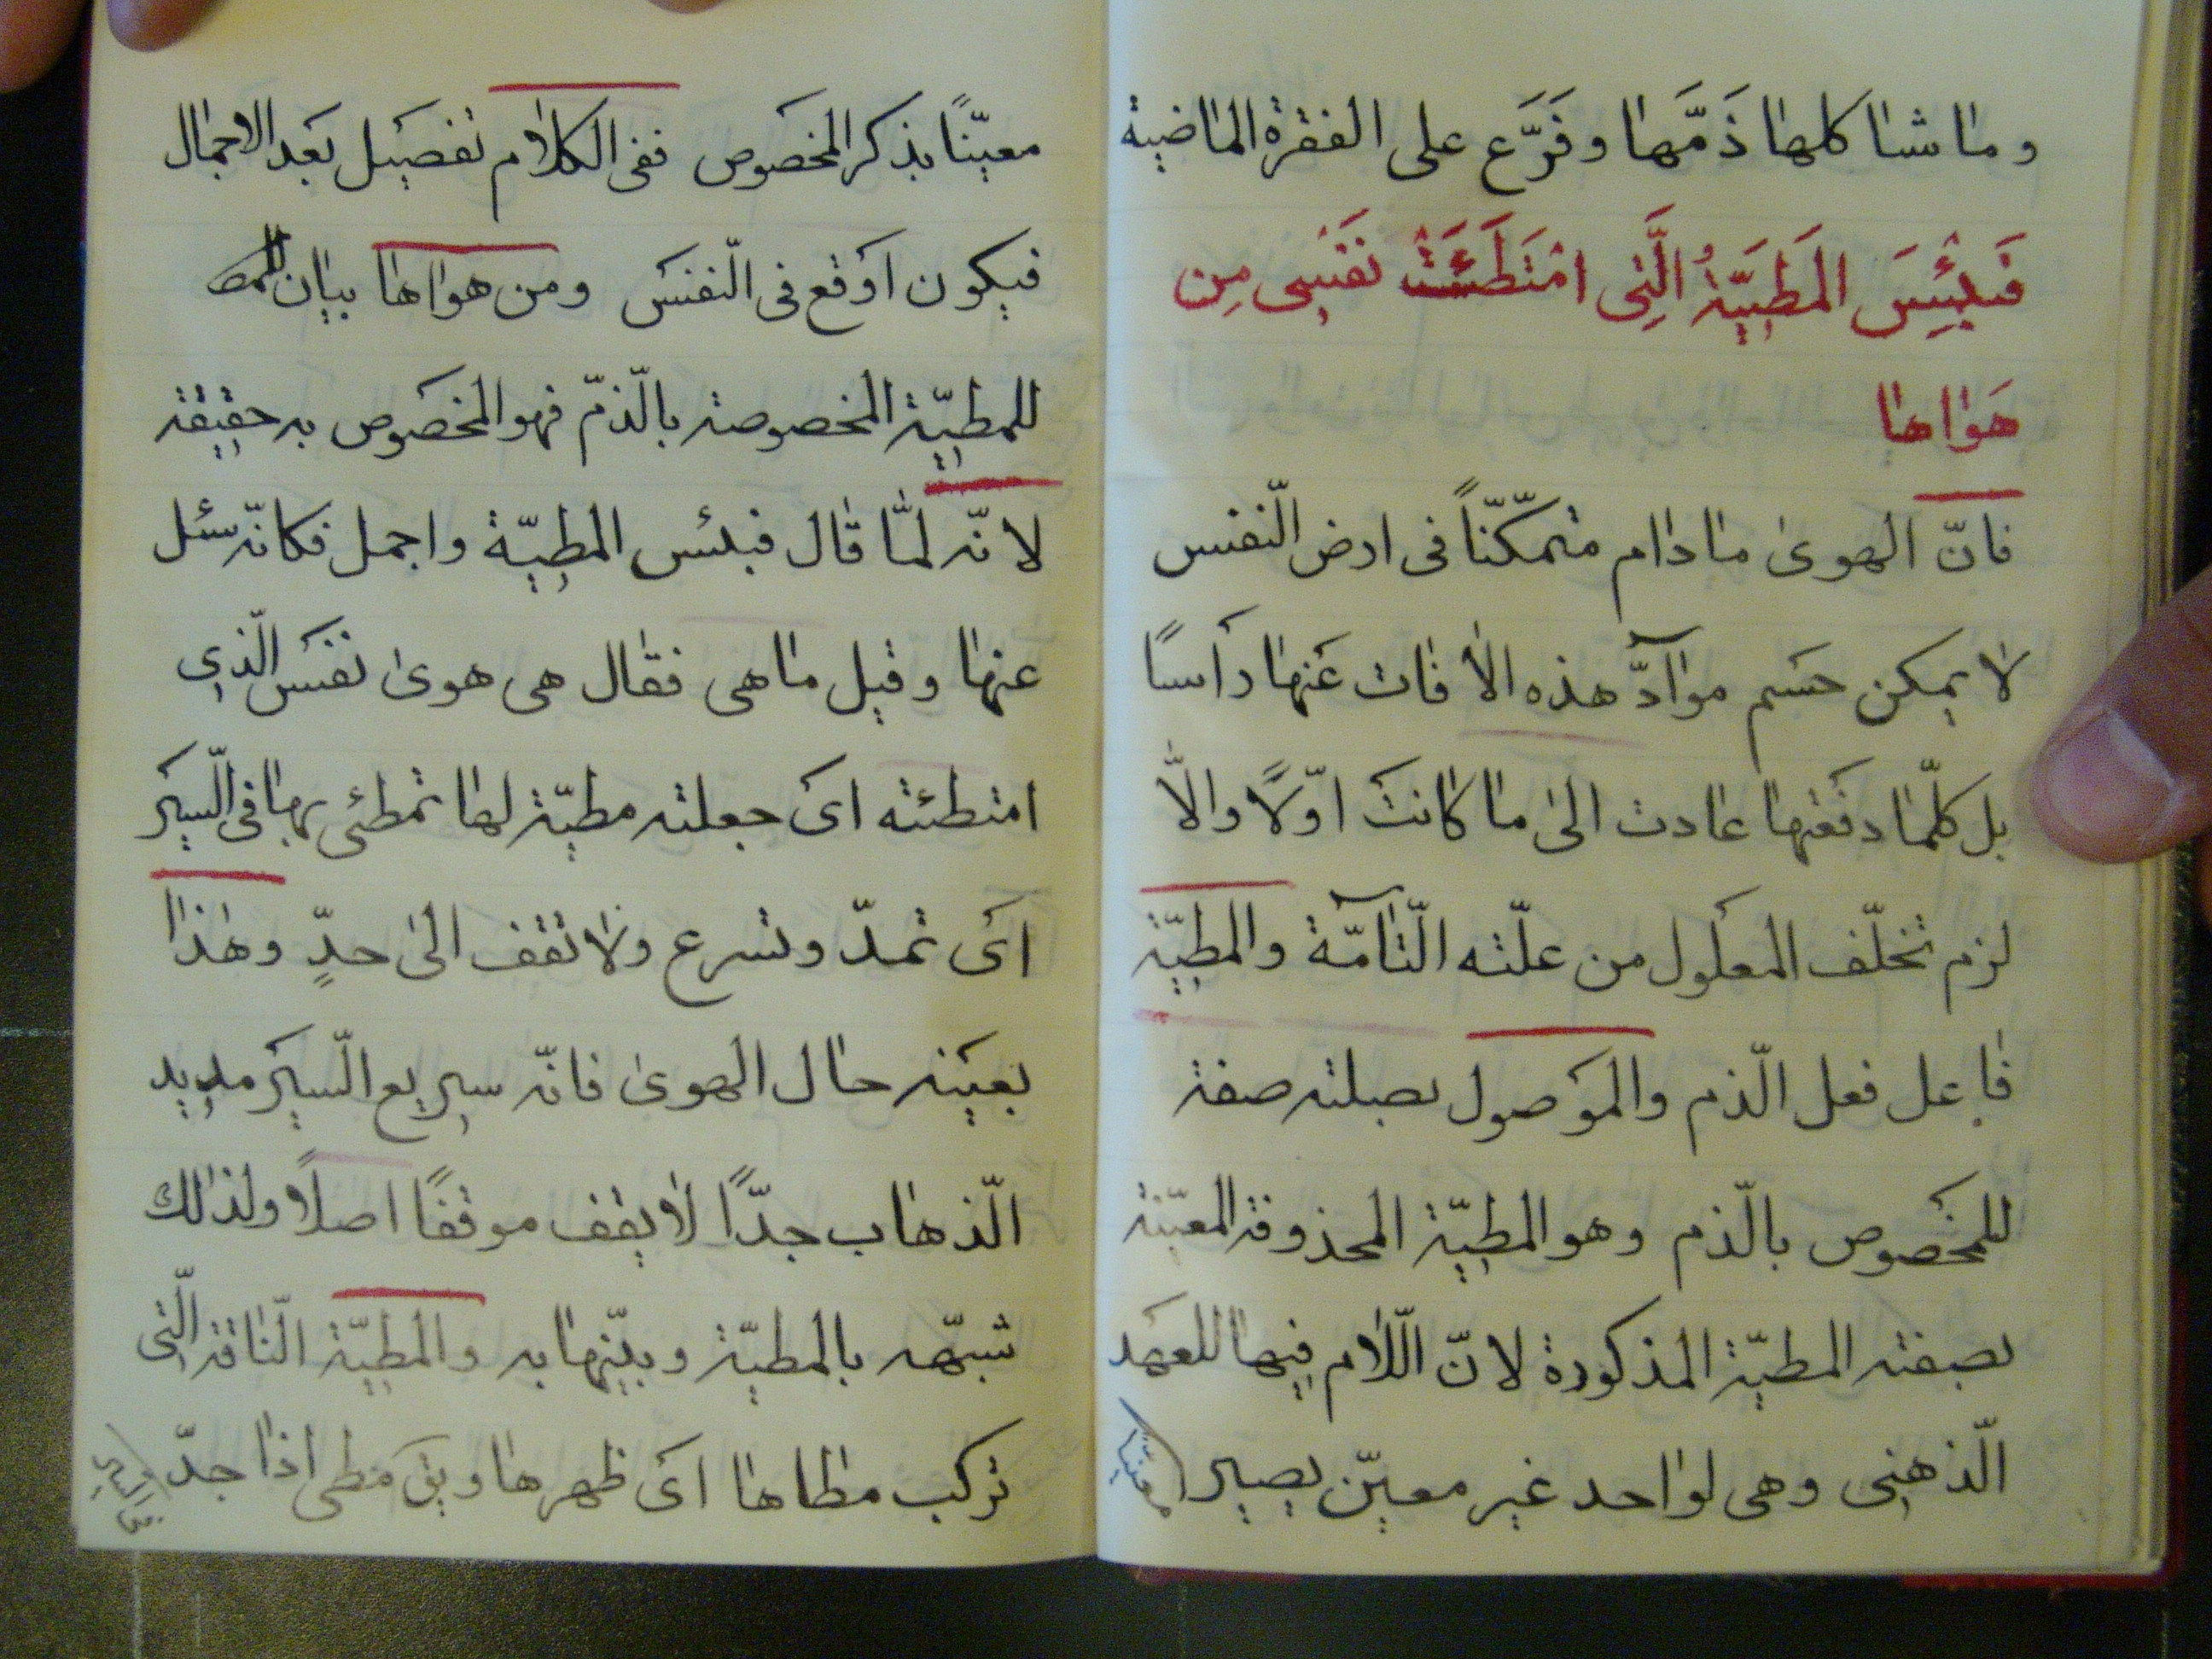 وماشاكلها ذَمَّها وفَرَّع على الفقرة الماضية
فَبِئْسَ المَطِيَّةُ الَّتِى امْتَطَئَتْ نَفْسِى مِن
هَواها
فانّ الهوىٰ مادام متمكّنّاً فى ارض النّفس
لا يمكن حسم موآدّ هذه الأفات عنها رأسًا
بل كلّما دفعتها عادت الىٰ ما كانت اوّلًا والّا
لزم تخلّف المعلول من علّته التّآمّة والمطيّة
فاعل فعل الذّم والموصول بصلته صفة
للمخصوص بالذّم وهو المطيّة المحذوفة المعيّنة
بصفته المطيّة المذكورة لانّ اللّام فيها للعهد
الذّهنى وهى لواحد غير معيّن يصير
معيّنًا
معيّنًا بذكر المخصوص ففى الكلام تفصيل بعد الاجمال
فيكون اوقع فى النّفس ومن هواها بيان
للمطيّة المخصوصة بالذّمّ فهو المخصوص به حقيقة
لانّه لمّا قال فبئس المطيّة واجمل فكانّه سئل
عنها وقيل ماهى فقال هى هوىٰ نفس الّذى
امتطئته اى جعلته مطيّة لها تمطئى بها فى السّير
اى تمدّ وتسرع ولا تقف الىٰ حدٍّ وهٰذا
بعينه حال الهوىٰ فانّه سريع السّير مديد
الذّهاب جدًّا لا يقف موقفًا اصلًا ولذٰلك
شبّهه بالمطيّة وبيّنها به والمطيّة النّاقة الّتى
تركب مطاها اى ظهرها ويق مطى اذا جدّ